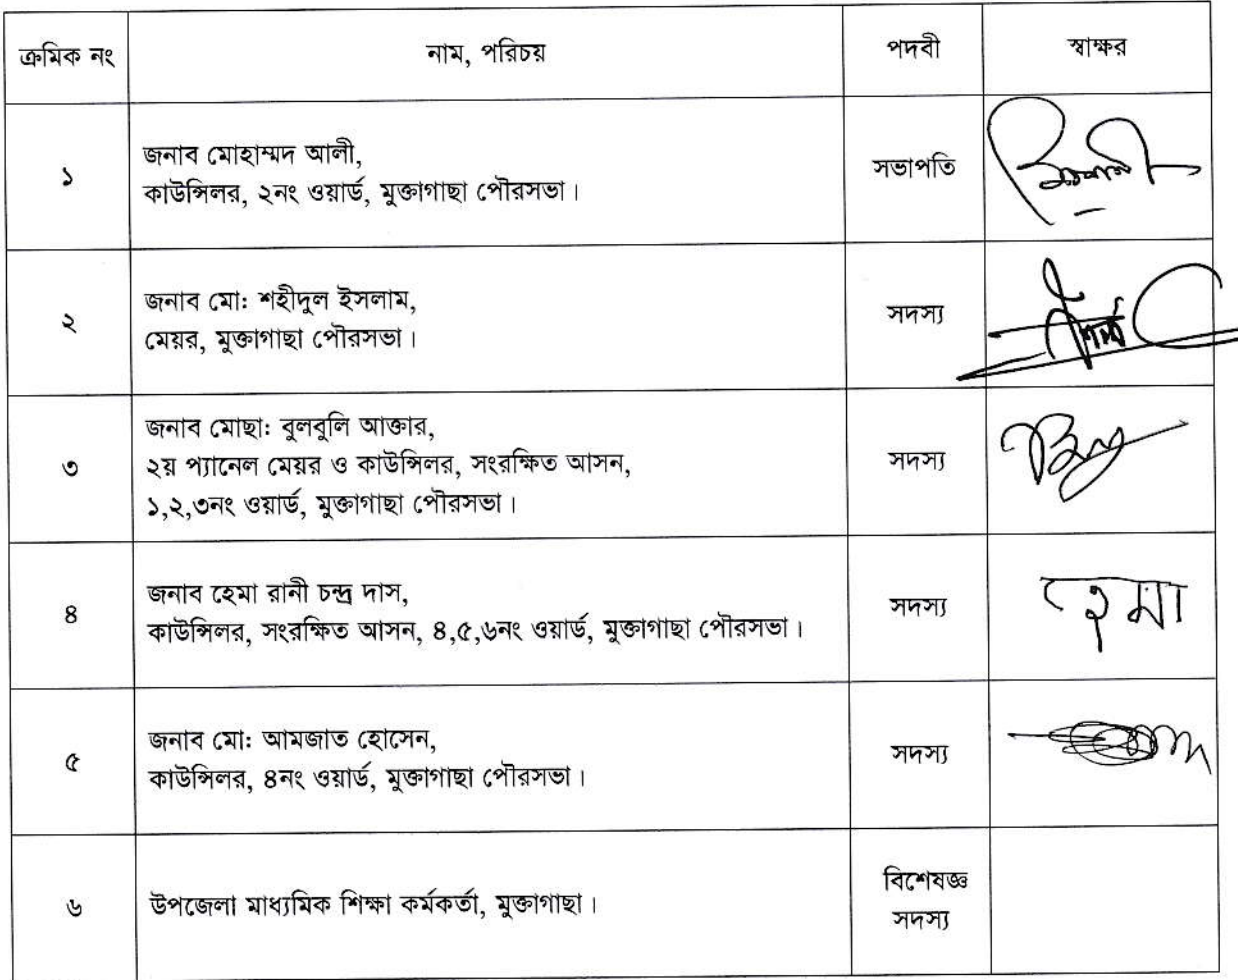 ক্রমিক নং নাম, পরিচয় পদবী স্বাক্ষর
১ জনাব মোহাম্মদ আলী,
কাউন্সিলর, ২নং ওয়ার্ড, মুক্তাগাছা পৌরসভা। সভাপতি
২ জনাব মো: শহীদুল ইসলাম,
মেয়র, মুক্তাগাছা পৌরসভা। সদস্য
৩ জনাব মোছা: বুলবুলি আক্তার,
২য় প্যানেল মেয়র ও কাউন্সিলর, সংরক্ষিত আসন,
১,২,৩নং ওয়ার্ড, মুক্তাগাছা পৌরসভা। সদস্য
৪ জনাব হেমা রানী চন্দ্র দাস,
কাউন্সিলর, সংরক্ষিত আসন, ৪,৫,৬নং ওয়ার্ড, মুক্তাগাছা পৌরসভা। সদস্য হেমা
৫ জনাব মো: আমজাত হোসেন,
কাউন্সিলর, ৪নং ওয়ার্ড, মুক্তাগাছা পৌরসভা। সদস্য
৬ উপজেলা মাধ্যমিক শিক্ষা কর্মকর্তা, মুক্তাগাছা। বিশেষজ্ঞ
সদস্য